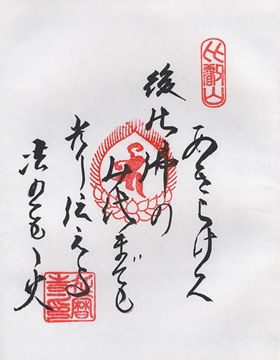 比叡山
あきらけく
後の佛の
み代までも
光り伝えよ
法のともし火